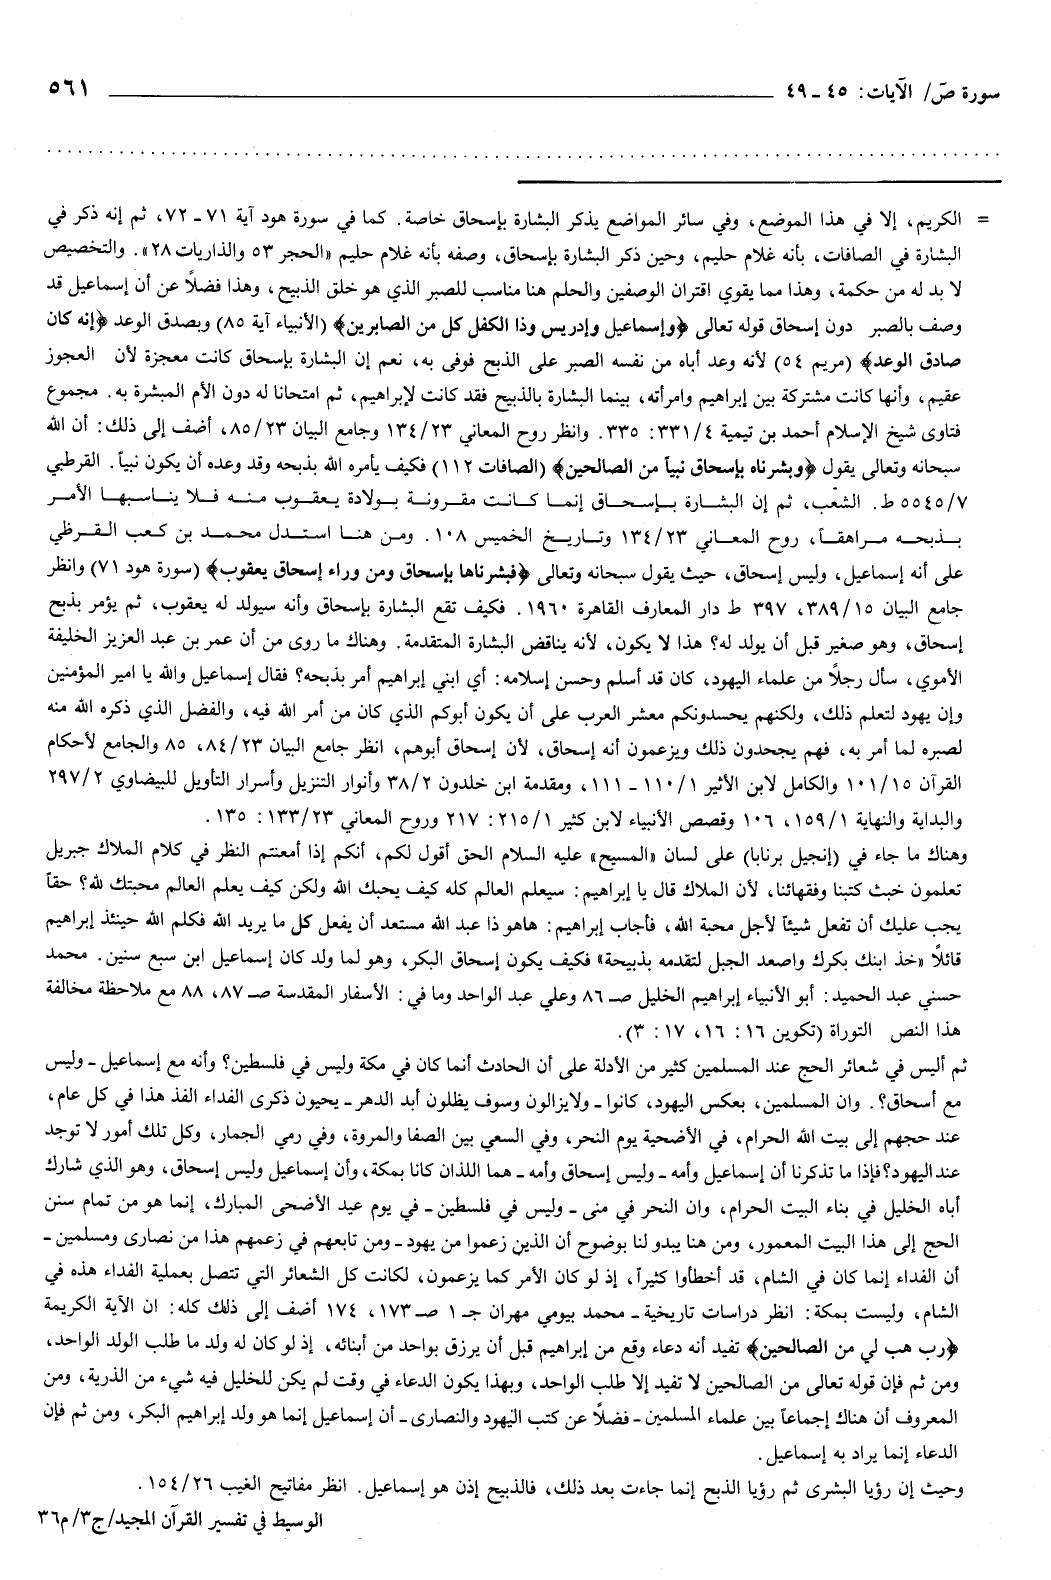 سورة صَ/ الآيات: ٤٥ ـ ٤٩ ٥٦١
= الكريم، إلا في هذا الموضع، وفي سائر المواضع يذكر البشارة بإسحاق خاصة. كما في سورة هود آية ٧١ ـ ٧٢، ثم إنه ذكر في
البشارة في الصافات، بأنه غلام حليم، وحين ذكر البشارة بإسحاق، وصفه بأنه غلام حليم «الحجر ٥٣ والذاريات ٢٨». والتخصيص
لا بد له من حكمة، وهذا مما يقوي اقتران الوصفين والحلم هنا مناسب للصبر الذي هو خلق الذبيح، وهذا فضلاً عن أن إسماعيل قد
وصف بالصبر دون إسحاق قوله تعالى ﴿وإسماعيل وإدريس وذا الكفل كل من الصابرين﴾ (الأنبياء آية ٨٥) وبصدق الوعد ﴿إنه كان
صادق الوعد﴾ (مريم ٥٤) لأنه وعد أباه من نفسه الصبر على الذبح فوفى به، نعم إن البشارة بإسحاق كانت معجزة لأن العجوز
عقيم، وأنها كانت مشتركة بين إبراهيم وامرأته، بينما البشارة بالذبيح فقد كانت لإبراهيم، ثم امتحانا له دون الأم المبشرة به. مجموع
فتاوى شيخ الإسلام أحمد بن تيمية ٣٣١/٤: ٣٣٥. وانظر روح المعاني ١٣٤/٢٣ وجامع البيان ٨٥/٢٣، أضف إلى ذلك: أن الله
سبحانه وتعالى يقول ﴿وبشرناه بإسحاق نبياً من الصالحين﴾ (الصافات ١١٢) فكيف يأمره الله بذبحه وقد وعده أن يكون نبياً. القرطبي
٥٥٤٥/٧ ط. الشعب، ثم إن البشارة بإسحاق إنما كانت مقرونة بولادة يعقوب منه فلا يناسبها الأمر
بذبحه مراهقاً، روح المعاني ١٣٤/٢٣ وتاريخ الخميس ١٠٨. ومن هنا استدل محمد بن كعب القرظي
على أنه إسماعيل، وليس إسحاق، حيث يقول سبحانه وتعالى ﴿فبشرناها بإسحاق ومن وراء إسحاق يعقوب﴾ (سورة هود ٧١) وانظر
جامع البيان ٣٨٩/١٥، ٣٩٧ ط دار المعارف القاهرة ١٩٦٠. فكيف تقع البشارة بإسحاق وأنه سيولد له يعقوب، ثم يؤمر بذبح
إسحاق، وهو صغير قبل أن يولد له؟ هذا لا يكون، لأنه يناقض البشارة المتقدمة. وهناك ما روى من أن عمر بن عبد العزيز الخليفة
الأموي، سأل رجلاً من علماء اليهود، كان قد أسلم وحسن إسلامه: أي ابني إبراهيم أمر بذبحه؟ فقال إسماعيل والله يا امير المؤمنين
وإن يهود لتعلم ذلك، ولكنهم يحسدونكم معشر العرب على أن يكون أبوكم الذي كان من أمر الله فيه، والفضل الذي ذكره الله منه
لصبره لما أمر به، فهم يجحدون ذلك ويزعمون أنه إسحاق، لأن إسحاق أبوهم، انظر جامع البيان ٨٤/٢٣، ٨٥ والجامع لأحكام
القرآن ١٠١/١٥ والكامل لابن الأثير ١١٠/١ ـ ١١١، ومقدمة ابن خلدون ٣٨/٢ وأنوار التنزيل وأسرار التأويل للبيضاوي ٢٩٧/٢
والبداية والنهاية ١٥٩/١، ١٠٦ وقصص الأنبياء لابن كثير ٢١٥/١: ٢١٧ وروح المعاني ١٣٣/٢٣: ١٣٥.
وهناك ما جاء في (إنجيل برنابا) على لسان «المسيح» عليه السلام الحق أقول لكم، أنكم إذا أمعنتم النظر في كلام الملاك جبريل
تعلمون خبث كتبنا وفقهائنا، لأن الملاك قال يا إبراهيم: سيعلم العالم كله كيف يحبك الله ولكن كيف يعلم العالم محبتك لله؟ حقاً
يجب عليك أن تفعل شيئاً لأجل محبة الله، فأجاب إبراهيم: هاهو ذا عبد الله مستعد أن يفعل كل ما يريد الله فكلم الله حينئذ إبراهيم
قائلاً «خذ ابنك بكرك واصعد الجبل لتقدمه بذبيحة» فكيف يكون إسحاق البكر، وهو لما ولد كان إسماعيل ابن سبع سنين. محمد
حسني عبد الحميد: أبو الأنبياء إبراهيم الخليل صـ ٨٦ وعلي عبد الواحد وما في: الأسفار المقدسة صـ ٨٧، ٨٨ مع ملاحظة مخالفة
هذا النص التوراة (تكوين ١٦: ١٦، ١٧: ٣).
ثم أليس في شعائر الحج عند المسلمين كثير من الأدلة على أن الحادث أنما كان في مكة وليس في فلسطين؟ وأنه مع إسماعيل ـ وليس
مع أسحاق؟. وان المسلمين، بعكس اليهود، كانوا ـ ولايزالون وسوف يظلون أبد الدهر ـ يحيون ذكرى الفداء الفذ هذا في كل عام،
عند حجهم إلى بيت الله الحرام، في الأضحية يوم النحر، وفي السعي بين الصفا والمروة، وفي رمي الجمار، وكل تلك أمور لا توجد
عند اليهود؟ فإذا ما تذكرنا أن إسماعيل وأمه ـ وليس إسحاق وأمه ـ هما اللذان كانا بمكة، وأن إسماعيل وليس إسحاق، وهو الذي شارك
أباه الخليل في بناء البيت الحرام، وان النحر في منى ـ وليس في فلسطين ـ في يوم عيد الأضحى المبارك، إنما هو من تمام سنن
الحج إلى هذا البيت المعمور، ومن هنا يبدو لنا بوضوح أن الذين زعموا من يهود ـ ومن تابعهم في زعمهم هذا من نصارى ومسلمين ـ
أن الفداء إنما كان في الشام، قد أخطأوا كثيراً، إذ لو كان الأمر كما يزعمون، لكانت كل الشعائر التي تتصل بعملية الفداء هذه في
الشام، وليست بمكة: انظر دراسات تاريخية ـ محمد بيومي مهران جـ ١ صـ ١٧٣، ١٧٤ أضف إلى ذلك كله: ان الآية الكريمة
﴿رب هب لي من الصالحين﴾ تفيد أنه دعاء وقع من إبراهيم قبل أن يرزق بواحد من أبنائه، إذ لو كان له ولد ما طلب الولد الواحد،
ومن ثم فإن قوله تعالى من الصالحين لا تفيد إلا طلب الواحد، وبهذا يكون الدعاء في وقت لم يكن للخليل فيه شيء من الذرية، ومن
المعروف أن هناك إجماعاً بين علماء المسلمين ـ فضلاً عن كتب اليهود والنصارى ـ أن إسماعيل إنما هو ولد إبراهيم البكر، ومن ثم فإن
الدعاء إنما يراد به إسماعيل.
وحيث إن رؤيا البشرى ثم رؤيا الذبح إنما جاءت بعد ذلك، فالذبيح إذن هو إسماعيل. انظر مفاتيح الغيب ١٥٤/٢٦.
الوسيط في تفسير القرآن المجيد/ج٣/م٣٦